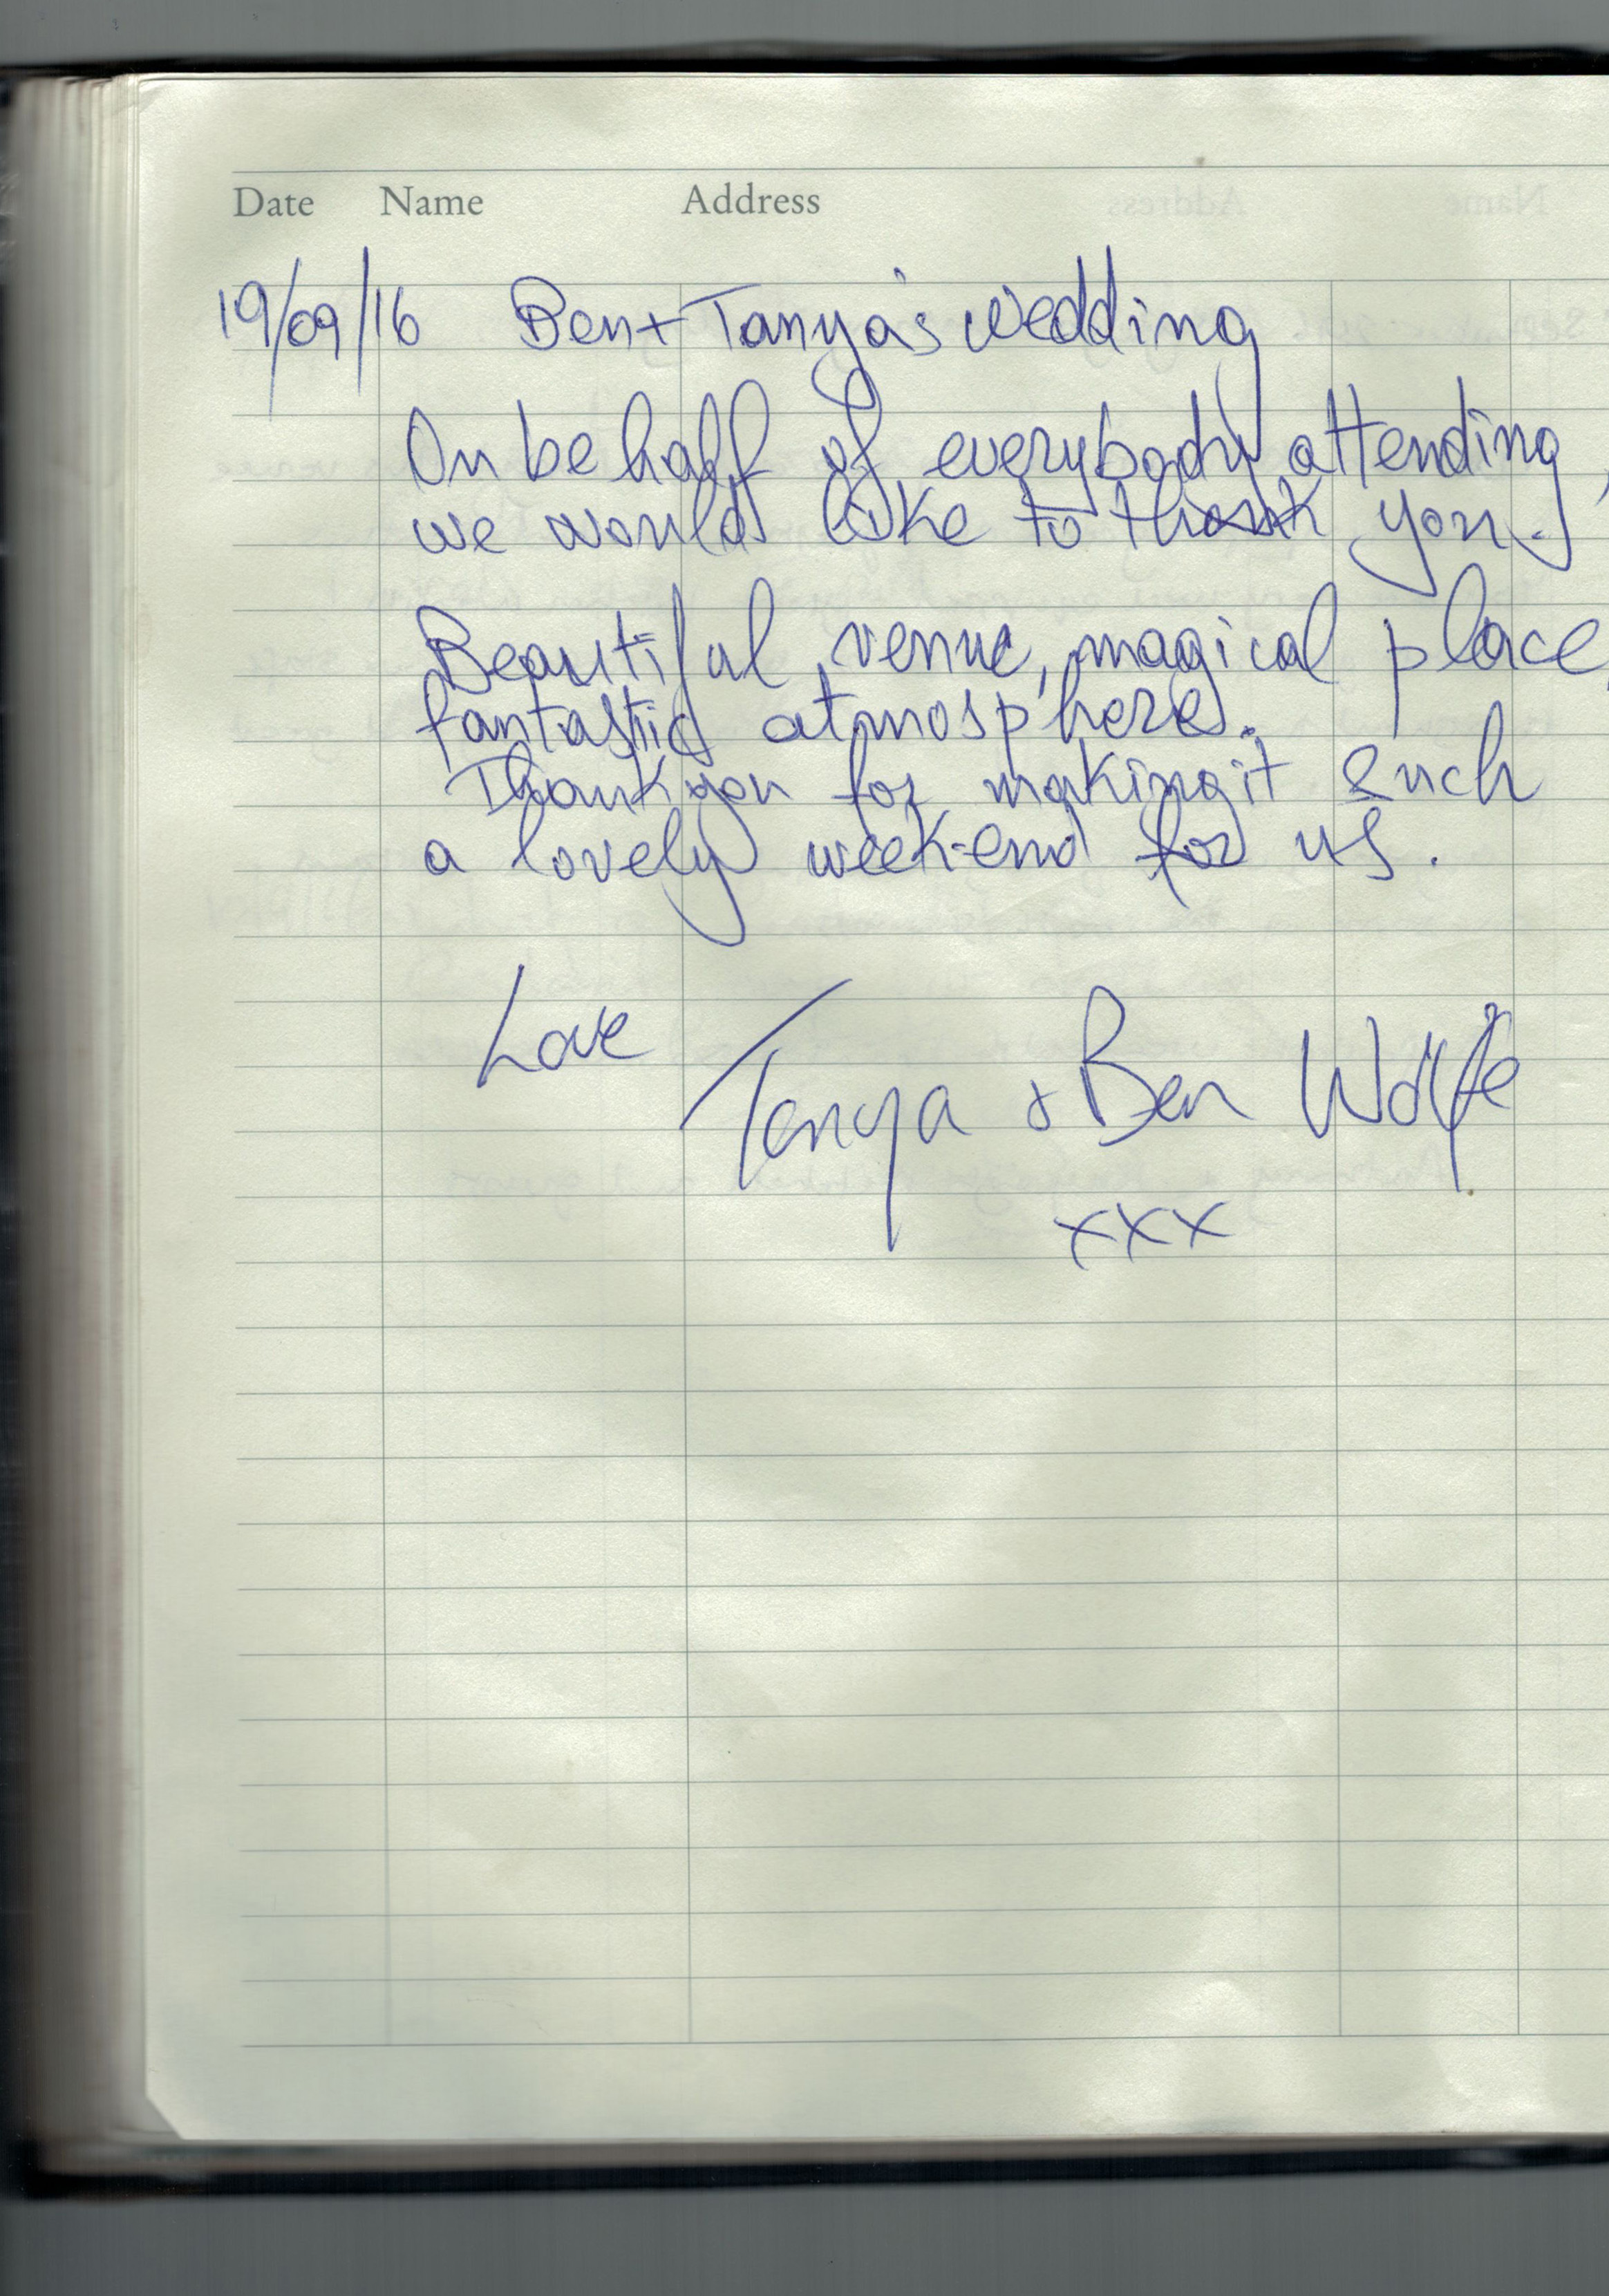 Date Name Address
19/09/16 Ben + Tanya's wedding
On behalf of everybody attending,
we would like to thank you.
Beautiful venue, magical place,
fantastic atmosphere.
Thank you for making it such
a lovely week-end for us.
Love Tanya & Ben Wolfe
xxx